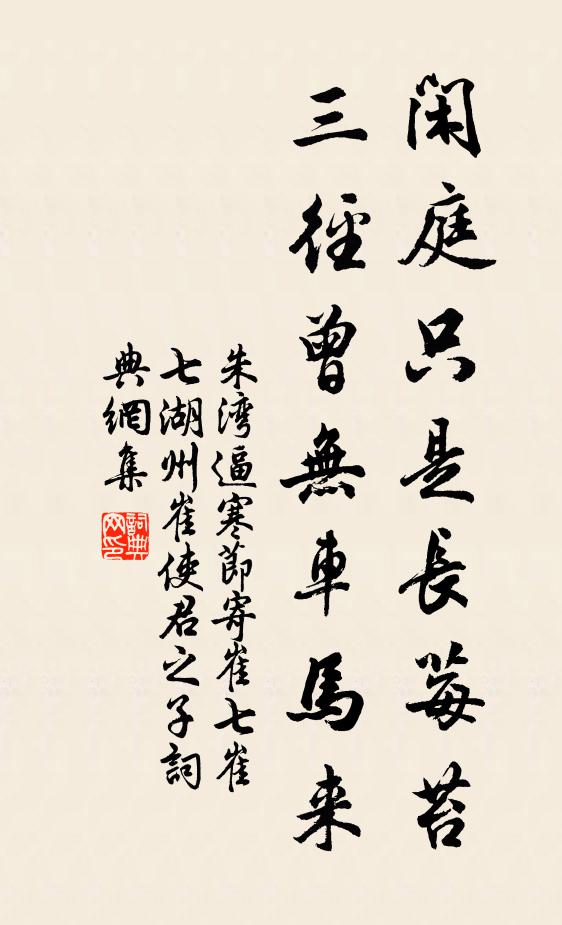 閑庭只是長莓苔
三徑曾無車馬来
朱湾逼寒節寄崔七崔
七湖州崔使君之子詞
典網集
詞典
网印